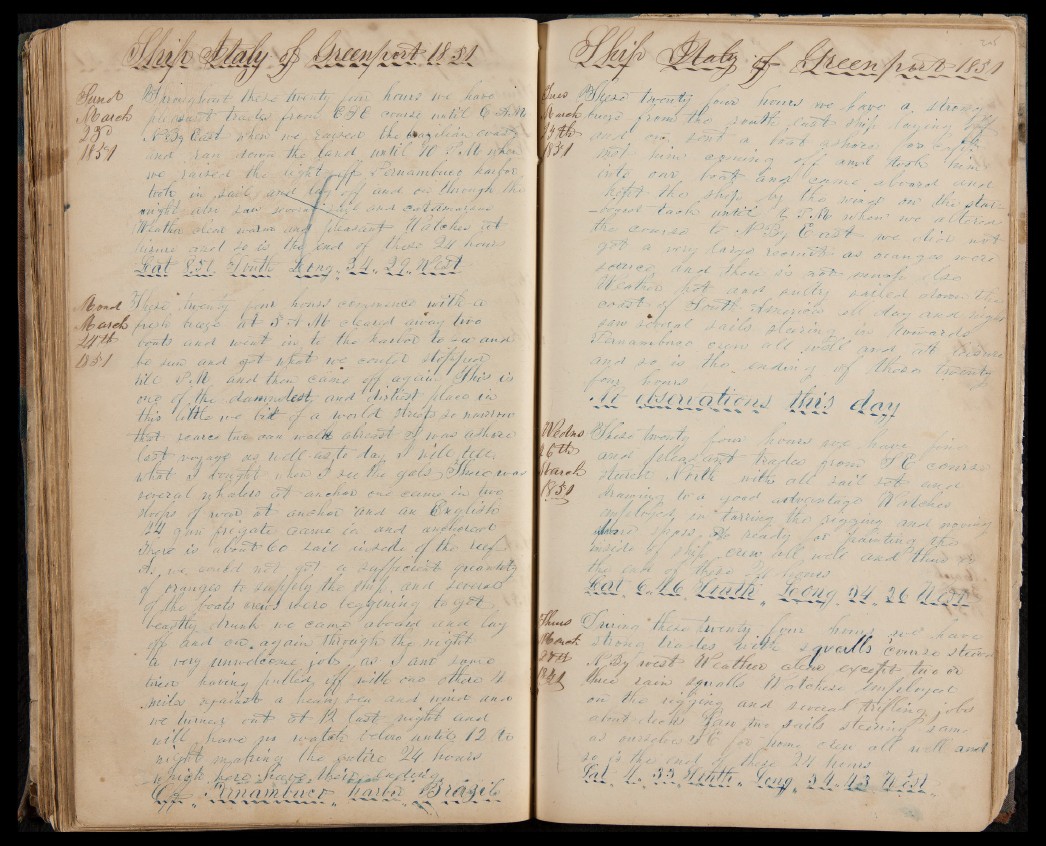 Ship Italy of Greenport 1851
Sund March 23rd 1851
Throughout these twenty four hours we have
pleasant trades from E S E course until 6
N By East when we raised the Brazilian coast
and ran down the land until 10 P.M. when
we raised the light off Pernambuco harbor
took in sail and lay off and on through the
night also saw several sail and catamarans
Weather clear warm and pleasant Watches set
and so is the end of these 24 hours
Lat 8.51 South Long 34.. 29 West
Mond March 24th 1851
These twenty four hours commence with a
fresh breeze at 5 A M cleared away two
boats and went in to the harbor to see and
be seen and got what we could
till P.M. and then came off again This is
one of the damnedest and dirtiest place in
this little we bit of a world streets so narrow
that scarce two can walk abreast I was ashore
last voyage as well as to day I will tell
what I bought when I see the gals There was
several whalers at anchor one came in two
sloops of war at anchor and an English
24 gun frigate came in and anchored
There is about 60 sail inside of the reef
we could not get a sufficient quantity
of oranges to supply the ship and several
of the boats crews were beginning to get
beastly drunk we came aboard and lay
off and on again through the night
a very unwelcome job as I am some
tired having pulled off with one other 4
miles against a heavy sea and wind and
we turned out at 12 last night and
will have no watch below until 12 to
night making the entire 24 hours
Off Pernambuco harbor Brazil
Ship Italy of Greenport 1851
Tues March 25th 1851
These twenty four hours we have a strong
breeze from the south east ship laying off
and on sent a boat ashore for
coming off and took him
into our boat and came aboard and
kept the ship by the wind on the star-
board tack until 6 P.M. when we altered
the course to N By East we did not
get a very large recruit as oranges were
scarce and there is not much else
Weather hot and sultry sailed down the
coast of South America all day and night
saw several sails steering in towards
Pernambuco crew all well and
and so is the ending of these twenty
four hours
No observations this day
Wedns 26th March 1851
These twenty four hours we have fine
and pleasant trades from S E course
steered North with all sail set and
drawing to a good advantage Watches
employed in tarring the rigging and
ready for painting the
inside of ship crew all well and thus is
the end of these 24 hours
Lat 6..46 South Long 34.. 26 West
Thurs March 27th 1851
During these twenty four hours we have
strong trades with squalls Course steered
N By west Weather clear except two or
three rain squalls Watches employed
on the rigging and several trifling jobs
about decks Saw two sails steering same
as ourselves crew all well and
so is the end of these 24 hours
Lat 4.. 33 South Long 34.43 West